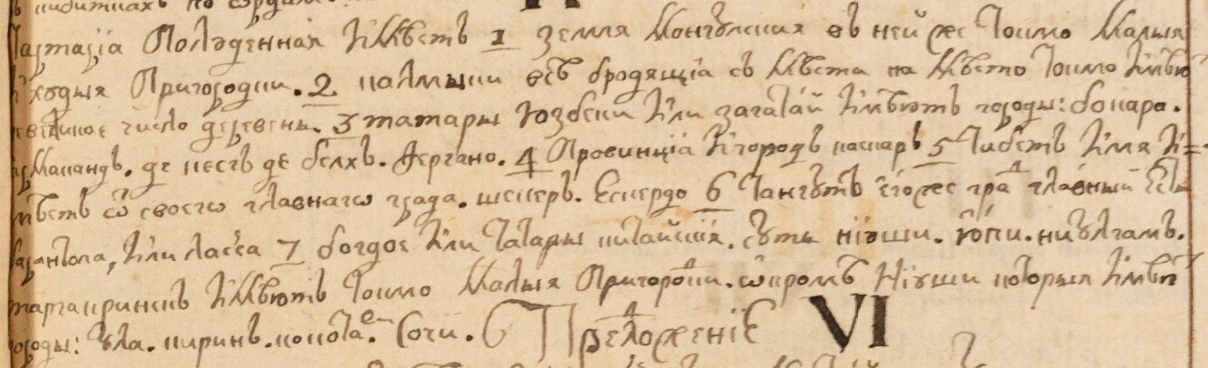 Тартаріа Полѹденная Имѣетъ 1 земля Монгѹлская въ ней же Токмо Малыя
Ходыя Пригородки. 2 калмыки всѣ бродящіа съ Мѣста на Мѣсто Токмо Имѣю
великое число деревень. 3 татары Юзбеки Или загатай Имѣютъ городы: бокара.
самакандъ. де несгъ де белхъ. Фергано. 4 Провинціа Игородъ каскаръ 5 Тибетъ Имя И=
мѣетъ ѿ своегѡ главнагѡ града. шекеръ. Ескердо 6 Тангѹтъ егоже градъ главный Есть
баранъола, Или ласса 7 богдое Или Татары китайскіа. сѹть ніѹши. юпи. ниѹлгамъ.
таргакринскъ Имѣютъ Токмо Малыя Пригородки. ѡкромѣ Ніѹши которыя Имѣю
городы: ѹла. киринъ. Сочи. Предложеніе VI